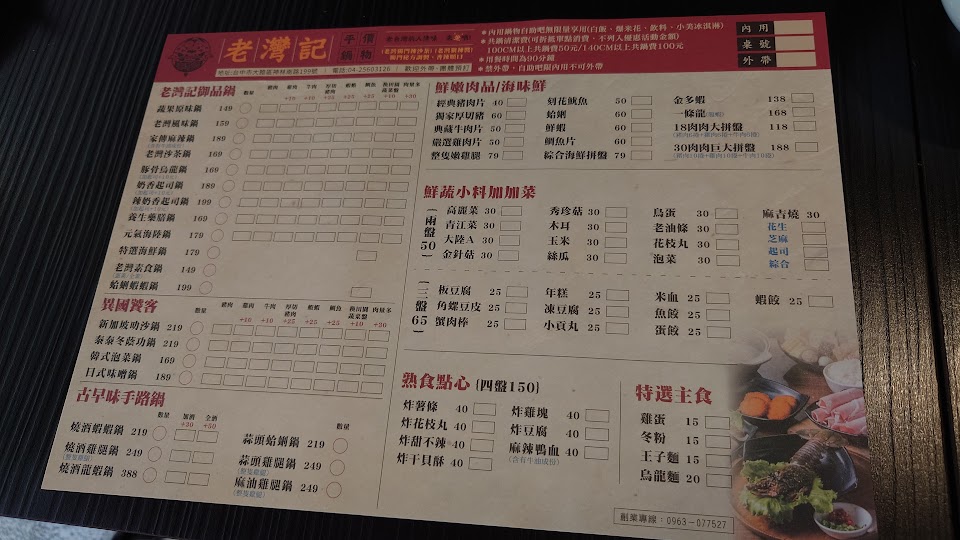 老灣記 平價鍋物
地址:台中市大雅區神林南路199號 電話:04-25603126 歡迎外帶・團體預訂
內用鍋物自助吧無限量享用(白飯、爆米花、飲料、小美冰淇淋)
共鍋清潔費(可折抵單點消費、不列入優惠活動金額)
100CM以上共鍋費50元/140CM以上共鍋費100元
用餐時間為90分鐘
禁外帶,自助吧限內用不可外帶
內用
桌號
外帶
老灣記御品鍋 數量 豬肉 雞肉 牛肉 厚切豬肉 蝦蝦 鯛魚
蔬果原味鍋 149
老灣風味鍋 159
家傳麻辣鍋 189
老灣沙茶鍋 169
豚骨烏龍鍋 169
奶香起司鍋 189
辣奶香起司鍋 199
養生藥膳鍋 169
元氣海陸鍋 179
特選海鮮鍋 179
老灣素食鍋 149
蛤蜊蝦蝦鍋 199
異國饕客 數量 豬肉 雞肉 牛肉 +10 厚切豬肉 +25 蝦蝦 +25 鯛魚 +25 +10 肉量多 +30
新加坡叻沙鍋 219
泰泰冬蔭功鍋 219
韓式泡菜鍋 169
日式味噌鍋 189
古早味手路鍋 數量 加酒 +30 全酒 +50
燒酒蝦蝦鍋 219
燒酒雞腿鍋 249
(整隻雞腿)
燒酒龍蝦鍋 388
數量
蒜頭蛤蜊鍋 219
蒜頭雞腿鍋 249
(整隻雞腿)
麻油雞腿鍋 249
(整隻雞腿)
鮮嫩肉品/海味鮮
經典豬肉片 40
獨家厚切豬 60
典藏牛肉片 50
嚴選雞肉片 50
整隻嫩雞腿 79
刻花魷魚 50
蛤蜊 60
鮮蝦 60
鯛魚片 60
綜合海鮮拼盤 79
金多蝦 138
一條龍 168
18肉肉大拼盤 118
30肉肉巨大拼盤 188
鮮蔬小料加加菜
(兩盤50)
高麗菜 30
青江菜 30
大陸A 30
金針菇 30
秀珍菇 30
木耳 30
玉米 30
絲瓜 30
鳥蛋 30
老油條 30
花枝丸 30
泡菜 30
麻吉燒 30
花生
芝麻
起司
綜合
(三盤65)
板豆腐 25
角螺豆皮 25
蟹肉棒 25
年糕 25
凍豆腐 25
小貢丸 25
米血 25
魚餃 25
蛋餃 25
蝦餃 25
熟食點心 (四盤150)
炸薯條 40
炸花枝丸 40
炸甜不辣 40
炸干貝酥 40
炸雞塊 40
炸豆腐 40
麻辣鴨血 40
(含有牛油成份)
特選主食
雞蛋 15
冬粉 15
王子麵 15
烏龍麵 20
創業專線:0963-077527